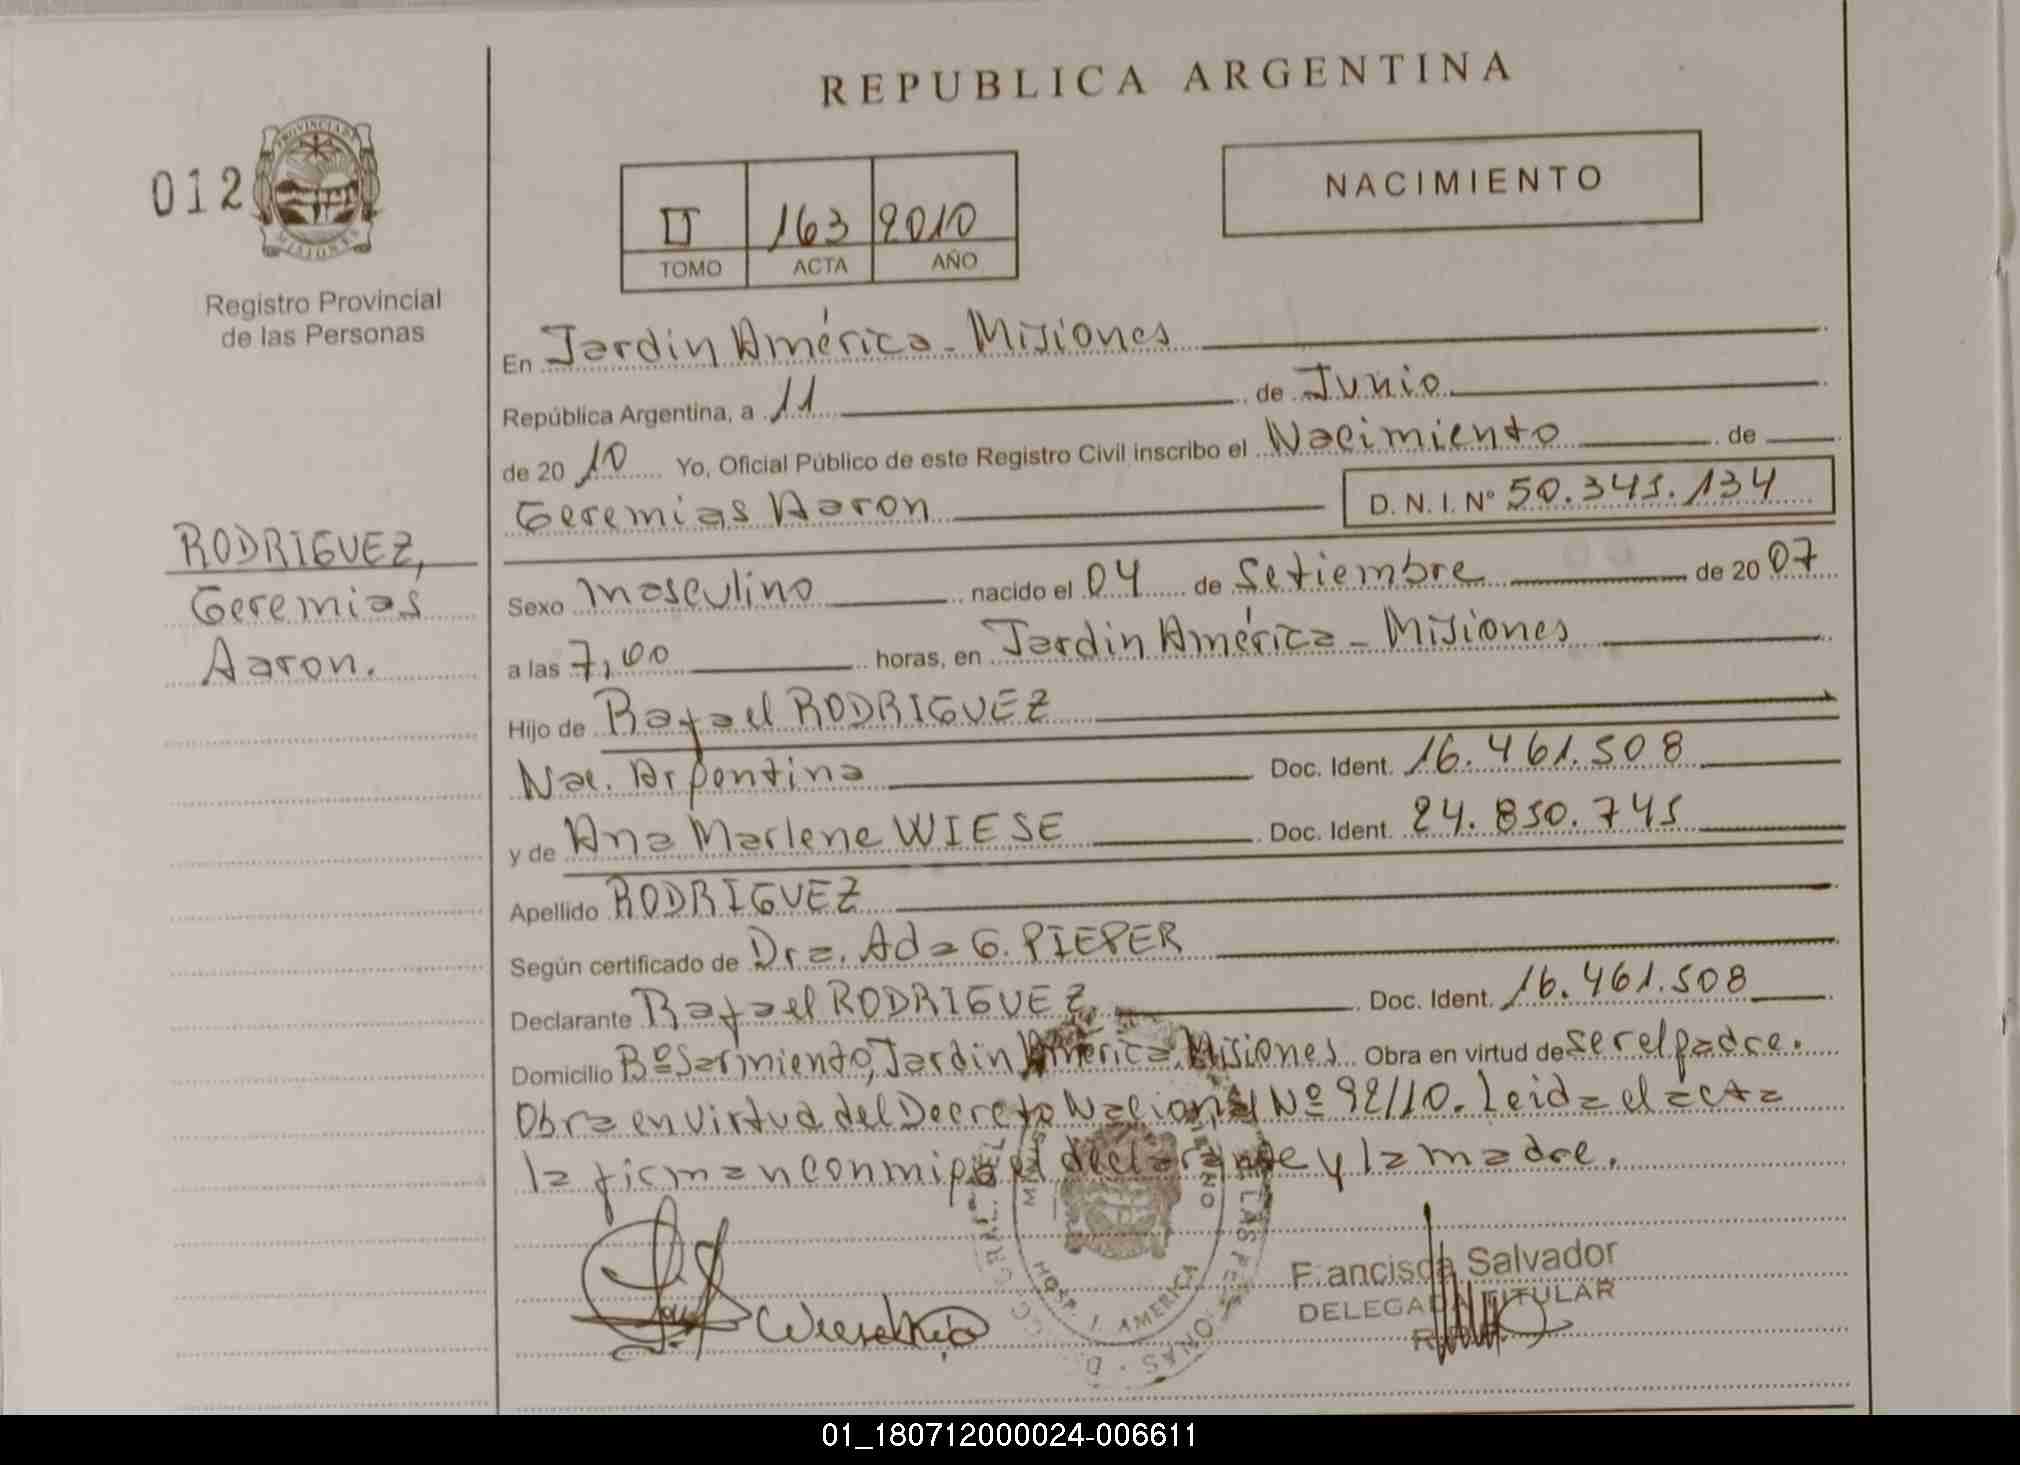 REPUBLICA ARGENTINA
012
PROVINCIA DE
MISIONES
Registro Provincial
de las Personas
II 163 2010
TOMO ACTA AÑO
NACIMIENTO
En Jardin América - Misiones
República Argentina, a 11 de Junio
de 20 10 Yo, Oficial Público de este Registro Civil inscribo el Nacimiento de
Geremias Aaron D.N.I. N° 50.345.134
RODRIGUEZ,
Geremias
Aaron.
Sexo masculino nacido el 04 de Setiembre de 20 07
a las 7,00 horas, en Jardin América - Misiones
Hijo de Rafael RODRIGUEZ
Nac. Argentina Doc. Ident. 16.461.508
y de Ana Marlene WIESE Doc. Ident. 24.850.745
Apellido RODRIGUEZ
Según certificado de Dra. Ada G. PIEPER
Declarante Rafael RODRIGUEZ Doc. Ident. 16.461.508
Domicilio Bº Sarmiento, Jardin América, Misiones Obra en virtud de ser el padre.
Obra en virtud del Decreto Nacional Nº 92/10. Leida el acta
la firman conmigo el declarante y la madre.
HOSP. J. AMERICA
Francisca Salvador
DELEGADA TITULAR
01_180712000024-006611